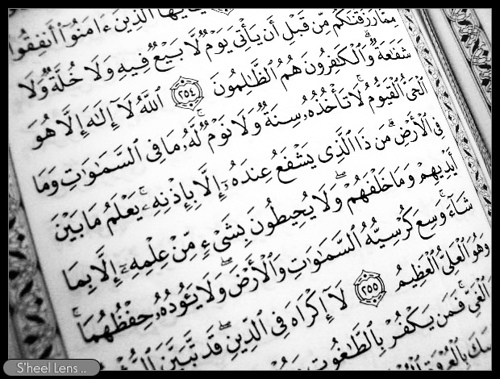 يَـٰٓأَيُّهَا ٱلَّذِينَ ءَامَنُوٓا۟ أَنفِقُوا۟
مِمَّا رَزَقْنَـٰكُم مِّن قَبْلِ أَن يَأْتِىَ يَوْمٌ لَّا بَيْعٌ فِيهِ وَلَا خُلَّةٌ وَلَا
شَفَـٰعَةٌ ۗ وَٱلْكَـٰفِرُونَ هُمُ ٱلظَّـٰلِمُونَ ٢٥٤ ٱللَّهُ لَآ إِلَـٰهَ إِلَّا هُوَ
ٱلْحَىُّ ٱلْقَيُّومُ ۚ لَا تَأْخُذُهُۥ سِنَةٌ وَلَا نَوْمٌ ۚ لَّهُۥ مَا فِى ٱلسَّمَـٰوَٰتِ وَمَا
فِى ٱلْأَرْضِ ۗ مَن ذَا ٱلَّذِى يَشْفَعُ عِندَهُۥٓ إِلَّا بِإِذْنِهِۦ ۚ يَعْلَمُ مَا بَيْنَ
أَيْدِيهِمْ وَمَا خَلْفَهُمْ ۖ وَلَا يُحِيطُونَ بِشَىْءٍ مِّنْ عِلْمِهِۦٓ إِلَّا بِمَا
شَآءَ ۚ وَسِعَ كُرْسِيُّهُ ٱلسَّمَـٰوَٰتِ وَٱلْأَرْضَ ۖ وَلَا يَـُٔودُهُۥ حِفْظُهُمَا ۚ
وَهُوَ ٱلْعَلِىُّ ٱلْعَظِيمُ ٢٥٥ لَآ إِكْرَاهَ فِى ٱلدِّينِ ۖ قَد تَّبَيَّنَ
ٱلْغَىِّ ۚ فَمَن يَكْفُرْ بِٱلطَّـٰغُوتِ
بِٱلْعُرْوَةِ
S'heel Lens..